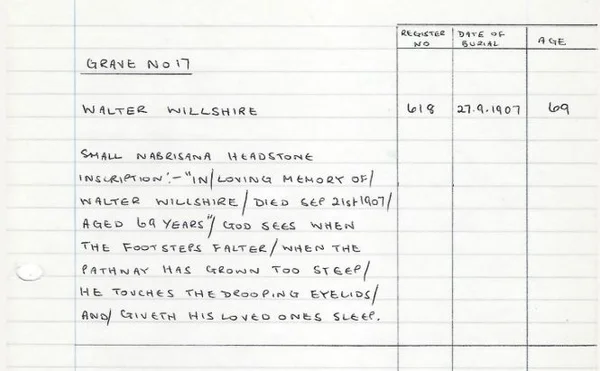 REGISTER NO DATE OF BURIAL AGE
GRAVE NO 17
WALTER WILLSHIRE 618 27.9.1907 69
SMALL NABRISANA HEADSTONE
INSCRIPTION:- "IN/LOVING MEMORY OF/
WALTER WILLSHIRE/ DIED SEP 21st 1907/
AGED 69 YEARS"/ GOD SEES WHEN
THE FOOTSTEPS FALTER/ WHEN THE
PATHWAY HAS GROWN TOO STEEP/
HE TOUCHES THE DROOPING EYELIDS/
AND/ GIVETH HIS LOVED ONES SLEEP.